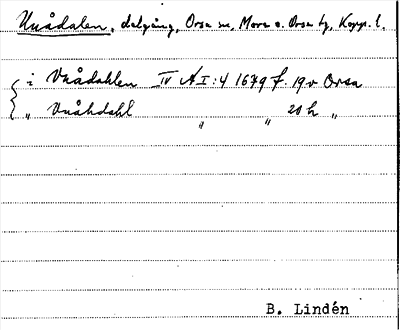 Unådalen, dalgång, Orsa sn, Mora o. Orsa tg, Kopp. l.
i Vnådahlen IV A I:4 1679 f. 19v Orsa
„ Vnåhdahl „ „ 20 h „
B. Lindén